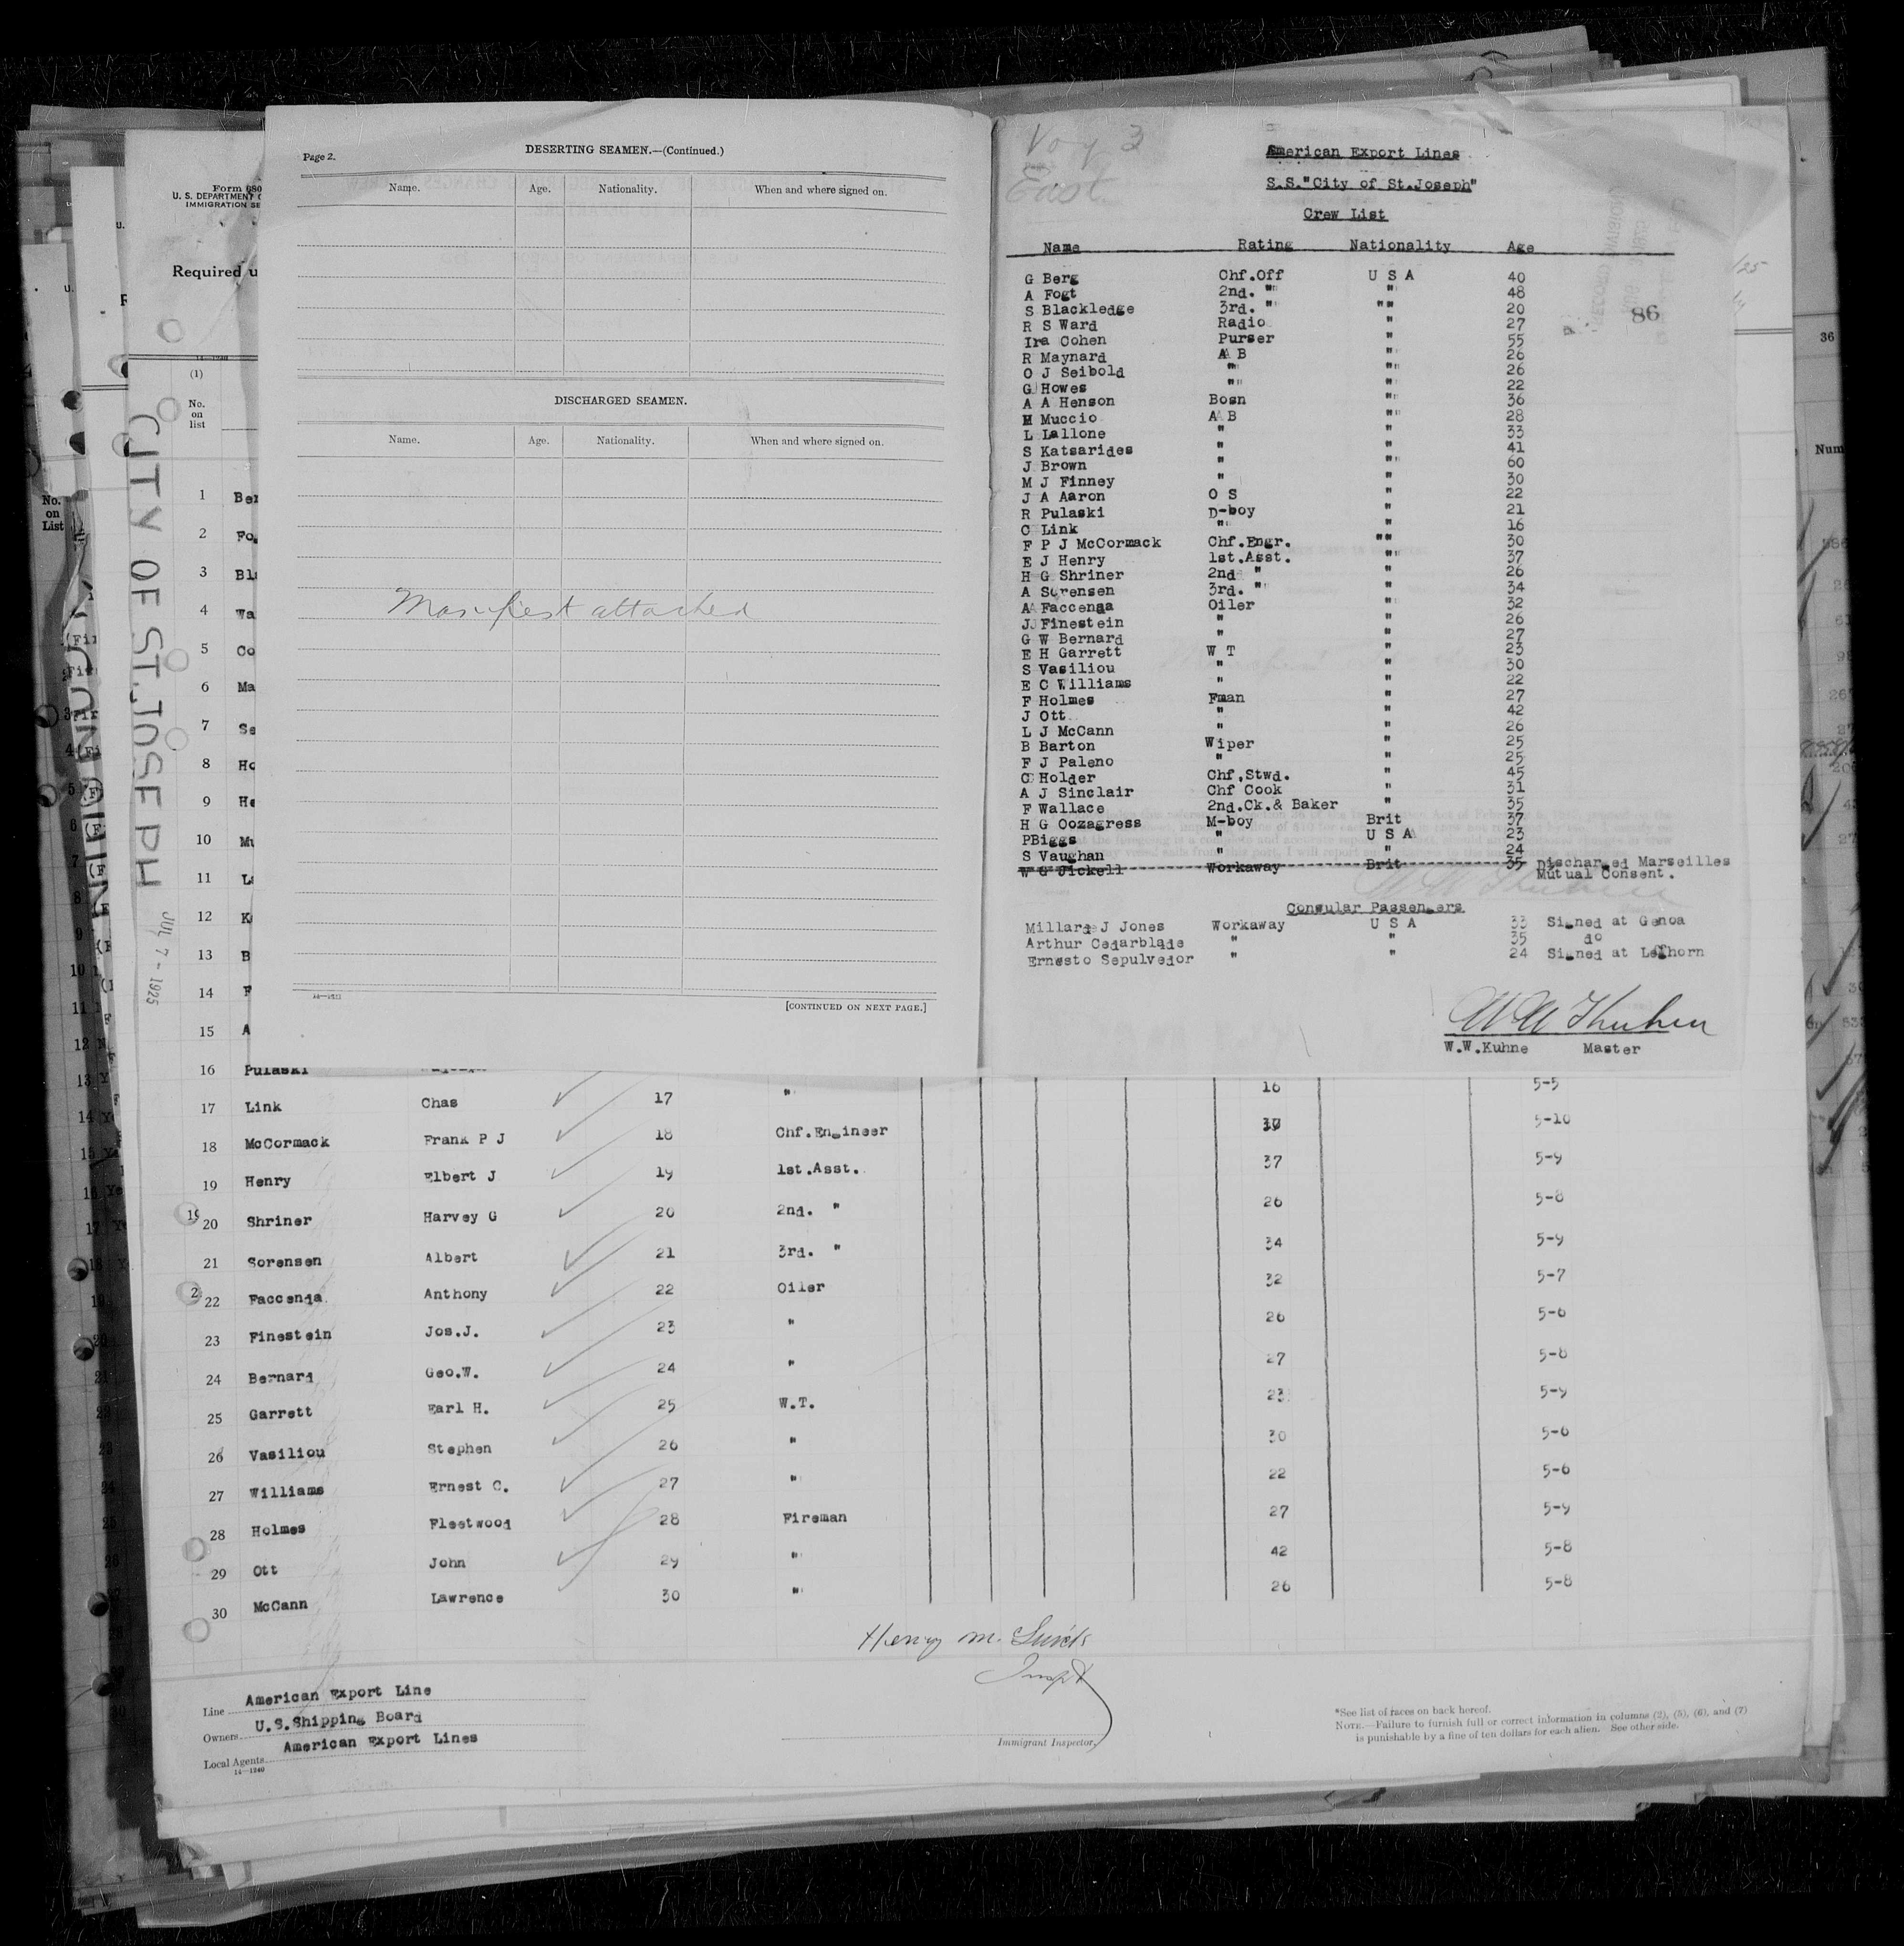 Page 2.
DESERTING SEAMEN.—(Continued.)
Name. Age. Nationality. When and where signed on.
DISCHARGED SEAMEN.
Name. Age. Nationality. When and where signed on.
Manifest attached
[CONTINUED ON NEXT PAGE.]
Voy 3
East
American Export Lines
S.S."City of St.Joseph"
Crew List
Name Rating Nationality Age
86
G Berg Chf.Off U S A 40
A Fogt 2nd. " " 48
S Blackledge 3rd. " " 20
R S Ward Radio " 27
Ira Cohen Purser " 55
R Maynard A B " 26
O J Seibold " " 26
G Howes " " 22
A A Henson Bosn " 36
M Muccio A B " 28
L Lallone " " 33
S Katsarides " " 41
J Brown " " 60
M J Finney " " 30
J A Aaron O S " 22
R Pulaski D-boy " 21
C Link " " 16
F P J McCormack Chf.Engr. " 30
E J Henry 1st.Asst. " 37
H G Shriner 2nd " " 26
A Sorensen 3rd. " " 34
A Faccenda Oiler " 32
J Finestein " " 26
G W Bernard " " 27
E H Garrett W T " 23
S Vasiliou " " 30
E C Williams " " 22
F Holmes Fman " 27
J Ott " " 42
L J McCann " " 26
B Barton Wiper " 25
F J Paleno " " 25
C Holder Chf.Stwd. " 45
A J Sinclair Chf Cook " 31
F Wallace 2nd.Ck.& Baker " 35
H G Oozagress M-boy Brit 37
PBiggs " U S A 23
S Vaughan " " 24
W G Jickell Workaway Brit 35 Discharged Marseilles
Mutual Consent.
Consular Passengers
Millard J Jones Workaway U S A 33 Signed at Genoa
Arthur Cedarblade " " 35 do
Ernesto Sepulvedor " " 24 Signed at Leghorn
W W Kuhne
W.W.Kuhne Master
Form 680
U. S. DEPARTMENT
IMMIGRATION SE
Required u
(1)
No.
on
list
CITY OF ST. JOSEPH
JUL 7 - 1925
1 Ber
2 Fo
3 Bl
4 Wa
5 Co
6 Ma
7 Se
8 Ho
9 He
10 Mu
11 L
12 K
13 B
14 F
15 A
16 Pulaski
17 Link Chas 17 " 16 5-5
18 McCormack Frank P J 18 Chf.Engineer 5-10
19 Henry Elbert J 19 1st.Asst. 37 5-9
20 Shriner Harvey G 20 2nd. " 26 5-8
21 Sorensen Albert 21 3rd. " 34 5-9
22 Faccenda Anthony 22 Oiler 32 5-7
23 Finestein Jos.J. 23 " 26 5-6
24 Bernard Geo.W. 24 " 27 5-8
25 Garrett Earl H. 25 W.T. 23 5-9
26 Vasiliou Stephen 26 " 30 5-6
27 Williams Ernest C. 27 " 22 5-6
28 Holmes Fleetwood 28 Fireman 27 5-9
29 Ott John 29 " 42 5-8
30 McCann Lawrence 30 " 26 5-8
Henry M.
Inspt
Immigrant Inspector.
Line American Export Line
Owners U.S.Shipping Board
Local Agents American Export Lines
14—1240
*See list of races on back hereof.
NOTE.—Failure to furnish full or correct information in columns (2), (5), (6), and (7)
is punishable by a fine of ten dollars for each alien. See other side.